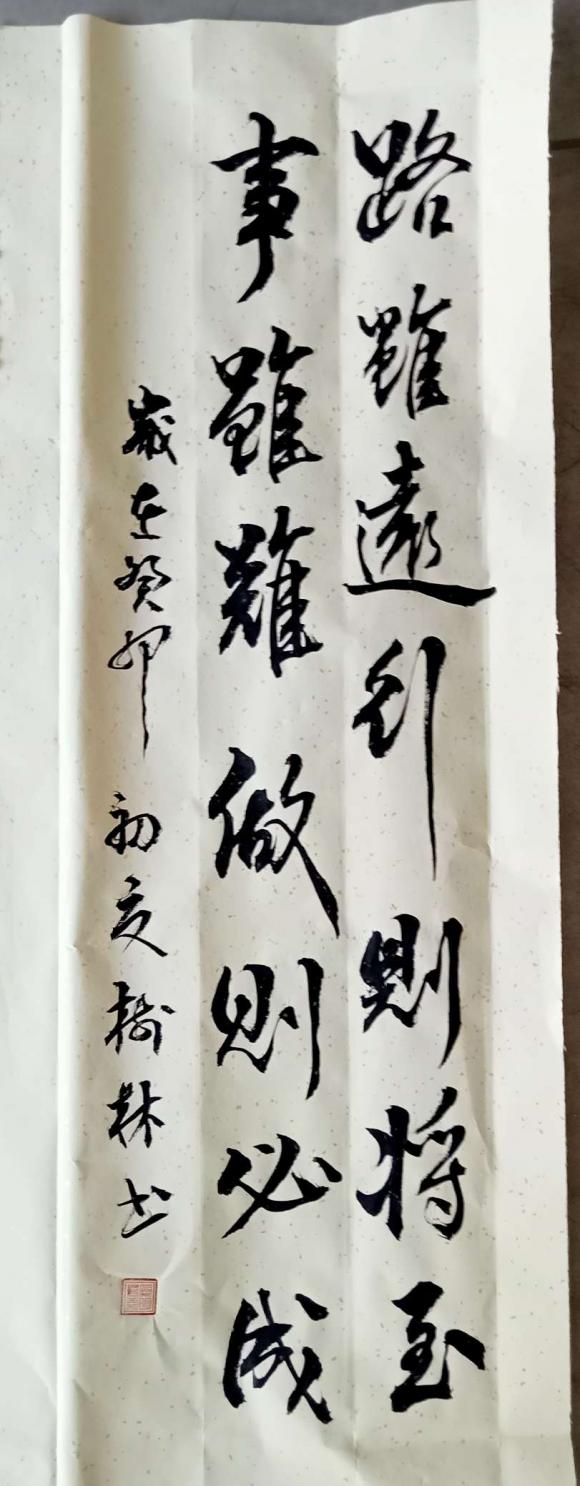 路雖遠行則將至
事雖難做則必成
歲在癸卯初夏樹林书